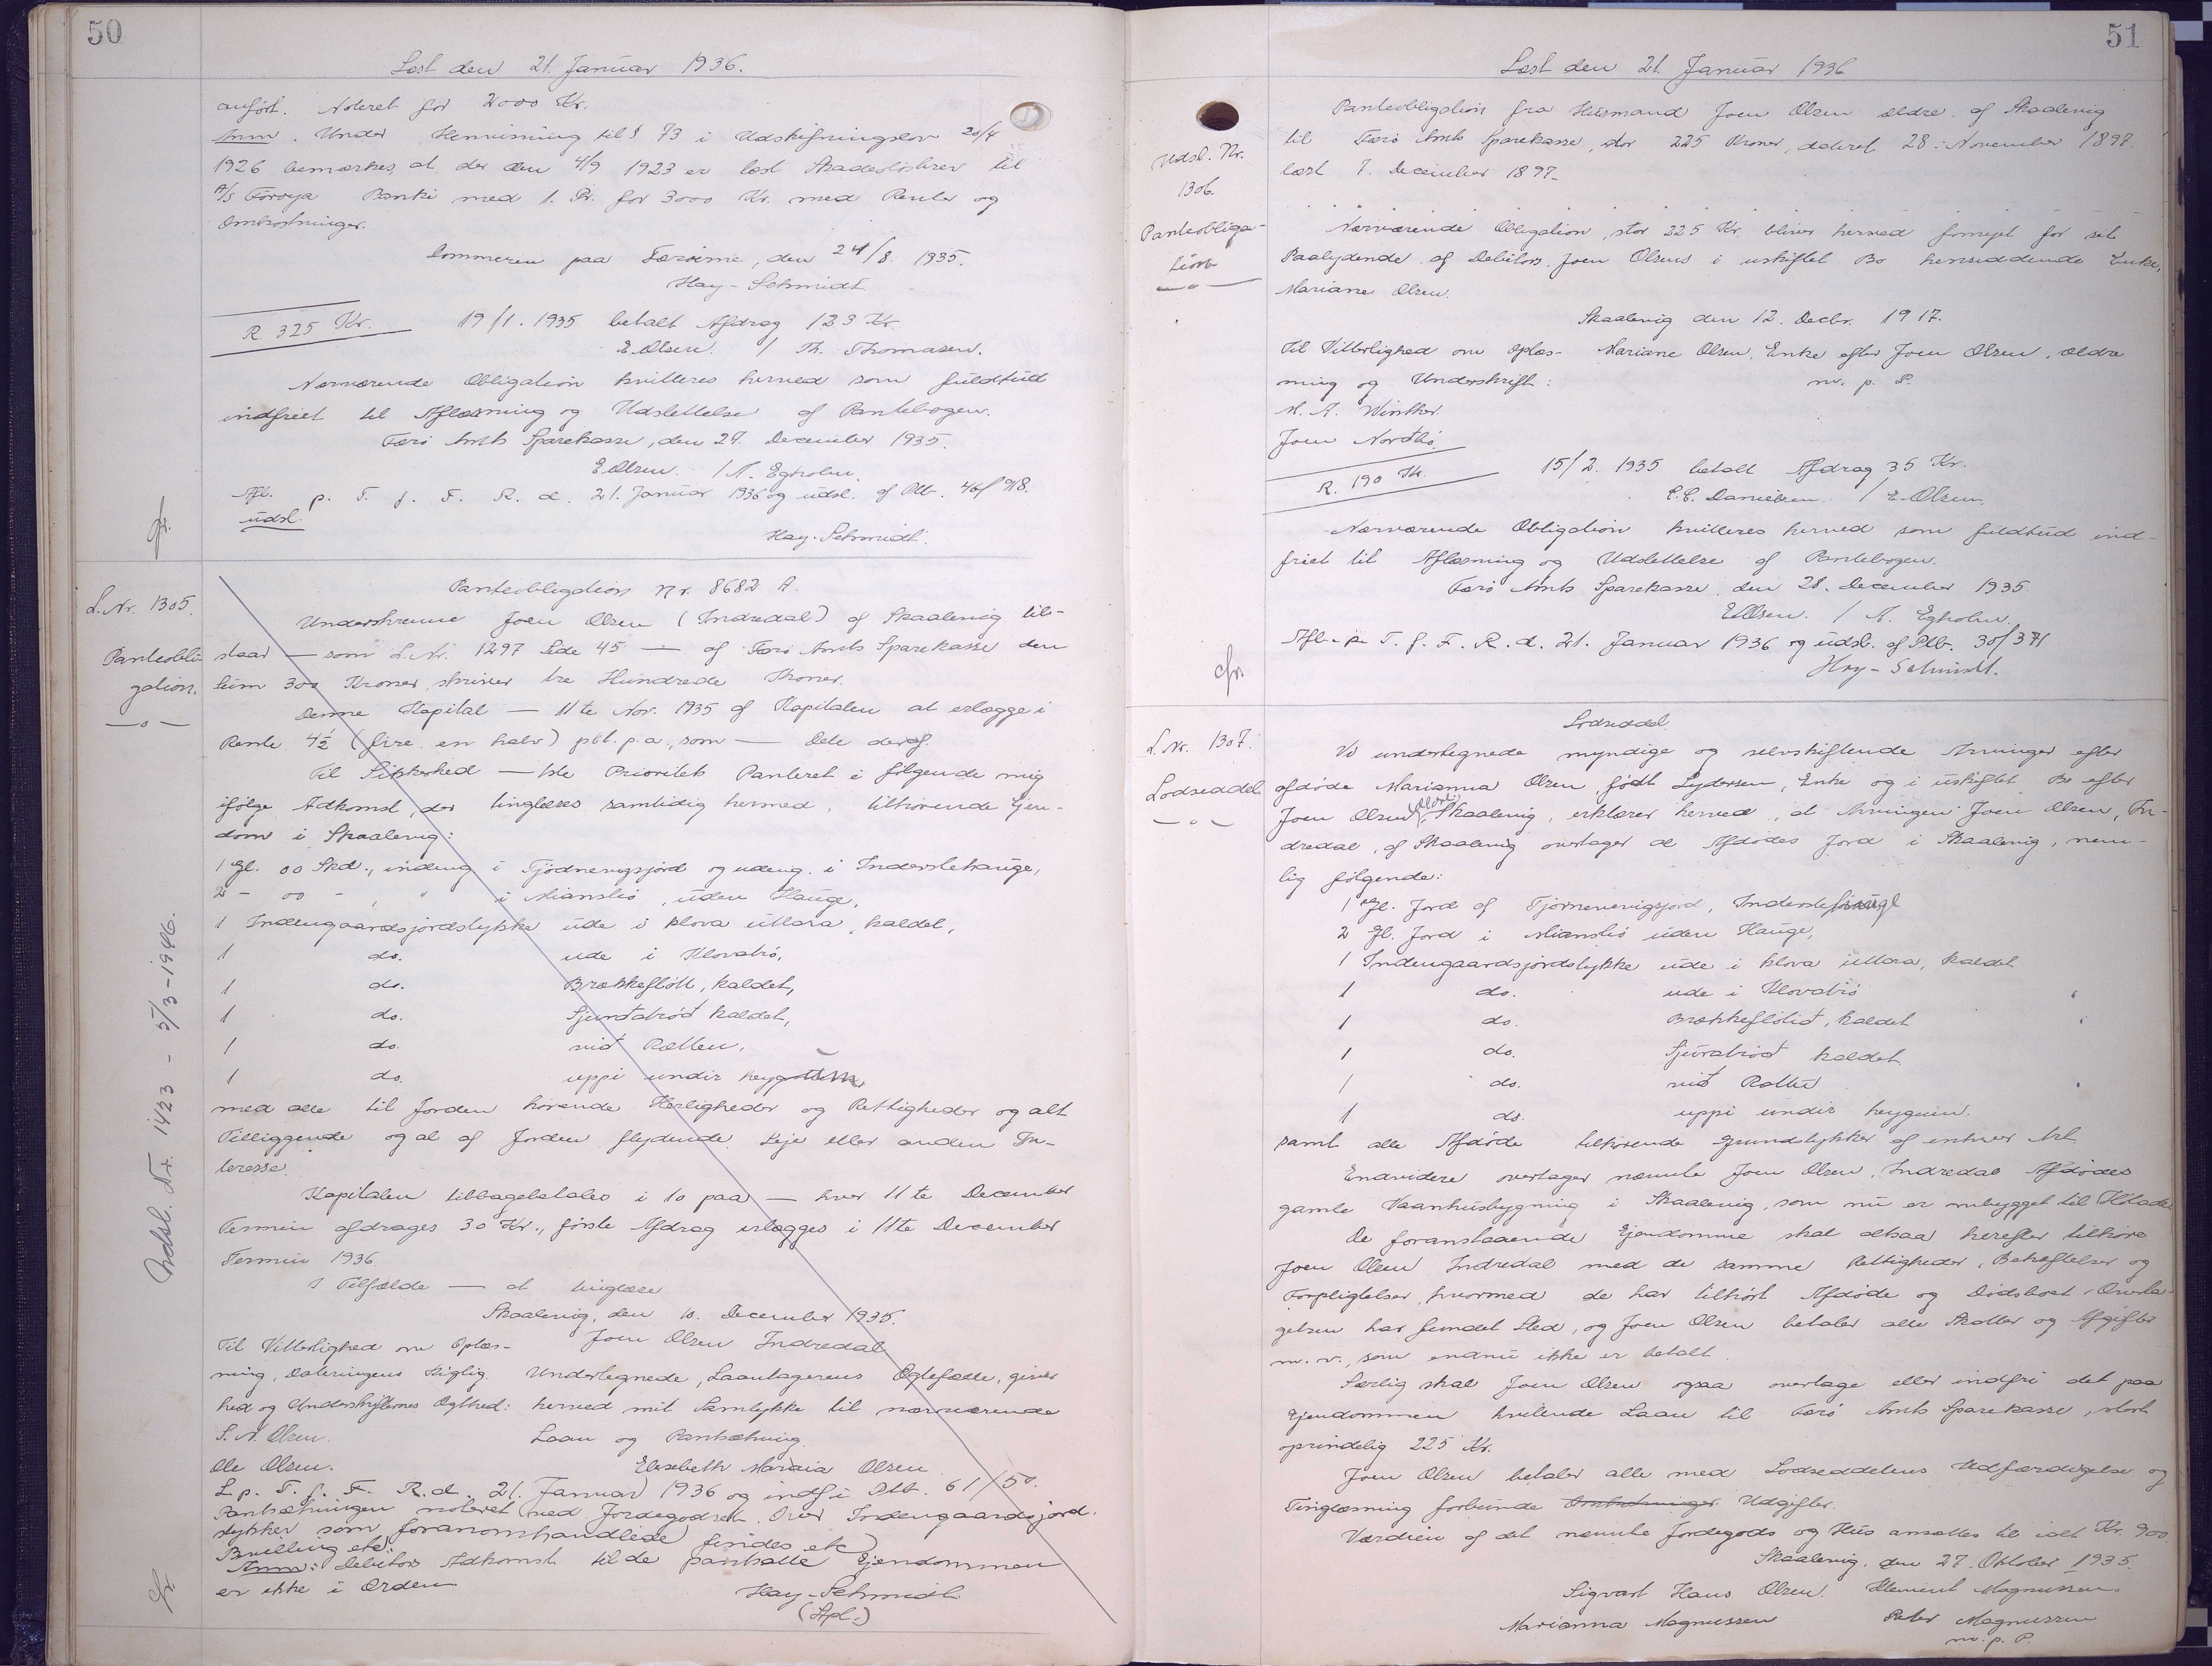 50
Læst den 21. Januar 1936.
anført. Noteret for 2000 Kr.
Anm. Under Henvisning til § 73 i Udskifningslov 20/4
1926 bemærkes, at der den 4/9 1923 er læst Skadesløsbrev til
A/S Føroya Banki med 1. Pr. for 3000 Kr. med Renter og
Omkostninger.
Dommeren paa Færøerne, den 24/8. 1935.
Hay-Schmidt
R. 325 Kr. 19/1. 1935 betalt Afdrag 123 Kr.
E. Olsen. / Th. Thomasen.
Nærværende Obligation kvitteres herved som fuldtud
indfriet til Aflæsning og Udslettelse af Pantebogen.
Færø Amts Sparekasse, den 27. December 1935.
E. Olsen. / A. Egholm.
Afl. p. T. f. F. R. d. 21. Januar 1936 og udsl. af Ptb. 46/918.
udsl.
Hay-Schmidt.
L. Nr. 1305.
Panteobli-
gation.
Udsl. Nr. 1423 - 5/3-1946.
Panteobligation Nr. 8682 A.
Underskrevne Joen Olsen (Indredal) af Skaalevig til-
staar — som L. Nr. 1297 Side 45 — af Færø Amts Sparekasse den
Sum 300 Kroner, skriver tre Hundrede Kroner.
Denne Kapital — 11te Nov. 1935 af Kapitalen at erlægge i
Rente 4½ (fire en halv) pCt. p.a., som — Dele deraf.
Til Sikkerhed — 1ste Prioritets Panteret i følgende mig
ifølge Adkomst, der tinglæses samtidig hermed, tilhørende Ejen-
dom i Skaalevig:
1 Gl. 00 Skd., indeng i Tjödnevigsjord og udeng. i Inderstehauge,
2 - 00 - , " i Mianstió, uden Hauge,
1 Indengaardsjordstykke ude i Klova uttara, kaldet,
1 do. ude i Klovatró,
1 do. Brækkefløtt, kaldet,
1 do. Sjúrðatróð kaldet,
1 do. við Rætten,
1 do. uppi undir heygnum
med alle til Jorden hørende Herligheder og Rettigheder og alt
Tilliggende og al af Jorden flydende Leje eller anden In-
teresse.
Kapitalen tilbagebetales i 10 paa — hver 11te December
Termin afdrages 30 Kr., første Afdrag erlægges i 11te December
Termin 1936.
I Tilfælde — at tinglæse.
Skaalevig, den 10. December 1935.
Til Vitterlighed om Oplæs- Joen Olsen Indredal
ning, Dateringens Rigtig- Undertegnede, Laantagerens Ægtefælle, giver
hed og Underskrifternes Ægthed: herved mit Samtykke til nærværende
S. A. Olsen. Laan og Pantsætning
Ole Olsen. Elisebeth Maraia Olsen
L. p. T. f. F. R. d. 21. Januar 1936 og indf. i Ptb. 61/50.
Pantsætningen noteret ved Jordegodset. Over Indengaardsjord-
stykker som foranomhandlede findes etc
Bevilling etc:
Anm: Debitors Adkomst til de pantsatte Ejendommen
er ikke i Orden
Hay-Schmidt
51
Læst den 21. Januar 1936
Udsl. Nr.
1306.
Panteobliga-
tion
Panteobligation fra Husmand Joen Olsen ældre af Skaalevig
til Færø Amts Sparekasse, stor 225 Kroner, dateret 28. November 1897.
læst 7. December 1897.
Nærværende Obligation, stor 225 Kr. bliver herved fornyet for sit
Paalydende af Debitors, Joen Olsens i uskiftet Bo hensiddende Enke,
Mariane Olsen.
Skaalevig den 12. Decbr. 1917.
Til Vitterlighed om Oplæs- Mariane Olsen, Enke efter Joen Olsen, ældre
ning og Underskrift: m. p. P.
M. A. Winther.
Joen Norðbó.
R. 190 Kr. 15/2. 1935 betalt Afdrag 35 Kr.
P. C. Danielsen. / E. Olsen.
Nærværende Obligation kvitteres herved som fuldtud ind-
friet til Aflæsning og Udslettelse af Pantebogen.
Færø Amts Sparekasse, den 28. December 1935.
E. Olsen. / A. Egholm.
Afl. p. T. f. F. R. d. 21. Januar 1936 og udsl. af Ptb. 30/371
Hay-Schmidt.
L. Nr. 1307.
Lodseddel
Lodseddel.
Vi undertegnede myndige og selvskiftende Arvinger efter
afdøde Marianna Olsen, født Lydersen, Enke og i uskiftet Bo efter
Joen Olsen, Skaalevig, erklærer herved, at Arvingen Joen Olsen, In-
dredal, af Skaalevig overtager al Afdødes Jord i Skaalevig, nem-
lig følgende:
1 Gl. Jord af Tjørnevigsjord, Inderstehauge
2 Gl. Jord i Mianstió uden Hauge,
1 Indengaardsjordstykke ude i Klova uttara, kaldet
1 do. ude i Klovatró
1 do. Brækkefløtið, kaldet
1 do. Sjúratróð kaldet
1 do. við Rættu
1 do. uppi undir heygnum.
samt alle Afdøde tilhørende Grundstykker af enhver Art.
Endvidere overtager nævnte Joen Olsen, Indredal Afdødes
gamle Vaanhusbygning i Skaalevig, som nu er ombygget til Hlade.
De foranstaaende Ejendomme skal altsaa herefter tilhøre
Joen Olsen Indredal med de samme Rettigheder, Behæftelser og
Forpligtelser, hvormed de har tilhørt Afdøde og Dødsboet. Overta-
gelsen har fundet Sted, og Joen Olsen betaler alle Skatter og Afgifter
m. v., som endnu ikke er betalt.
Særlig skal Joen Olsen ogsaa overtage eller indfri det paa
Ejendommen hvilende Laan til Færø Amts Sparekasse, stort
oprindelig 225 Kr.
Joen Olsen betaler alle med Lodseddelens Udfærdigelse og
Tinglæsning forbundne Omkostninger Udgifter.
Værdien af det nævnte Jordegods og Hus ansættes til ialt Kr. 900.
Skaalevig, den 27. Oktober 1935.
Sigvart Hans Olsen. Klement Magnussen.
Marianna Magnussen Peter Magnussen
m. p. P.